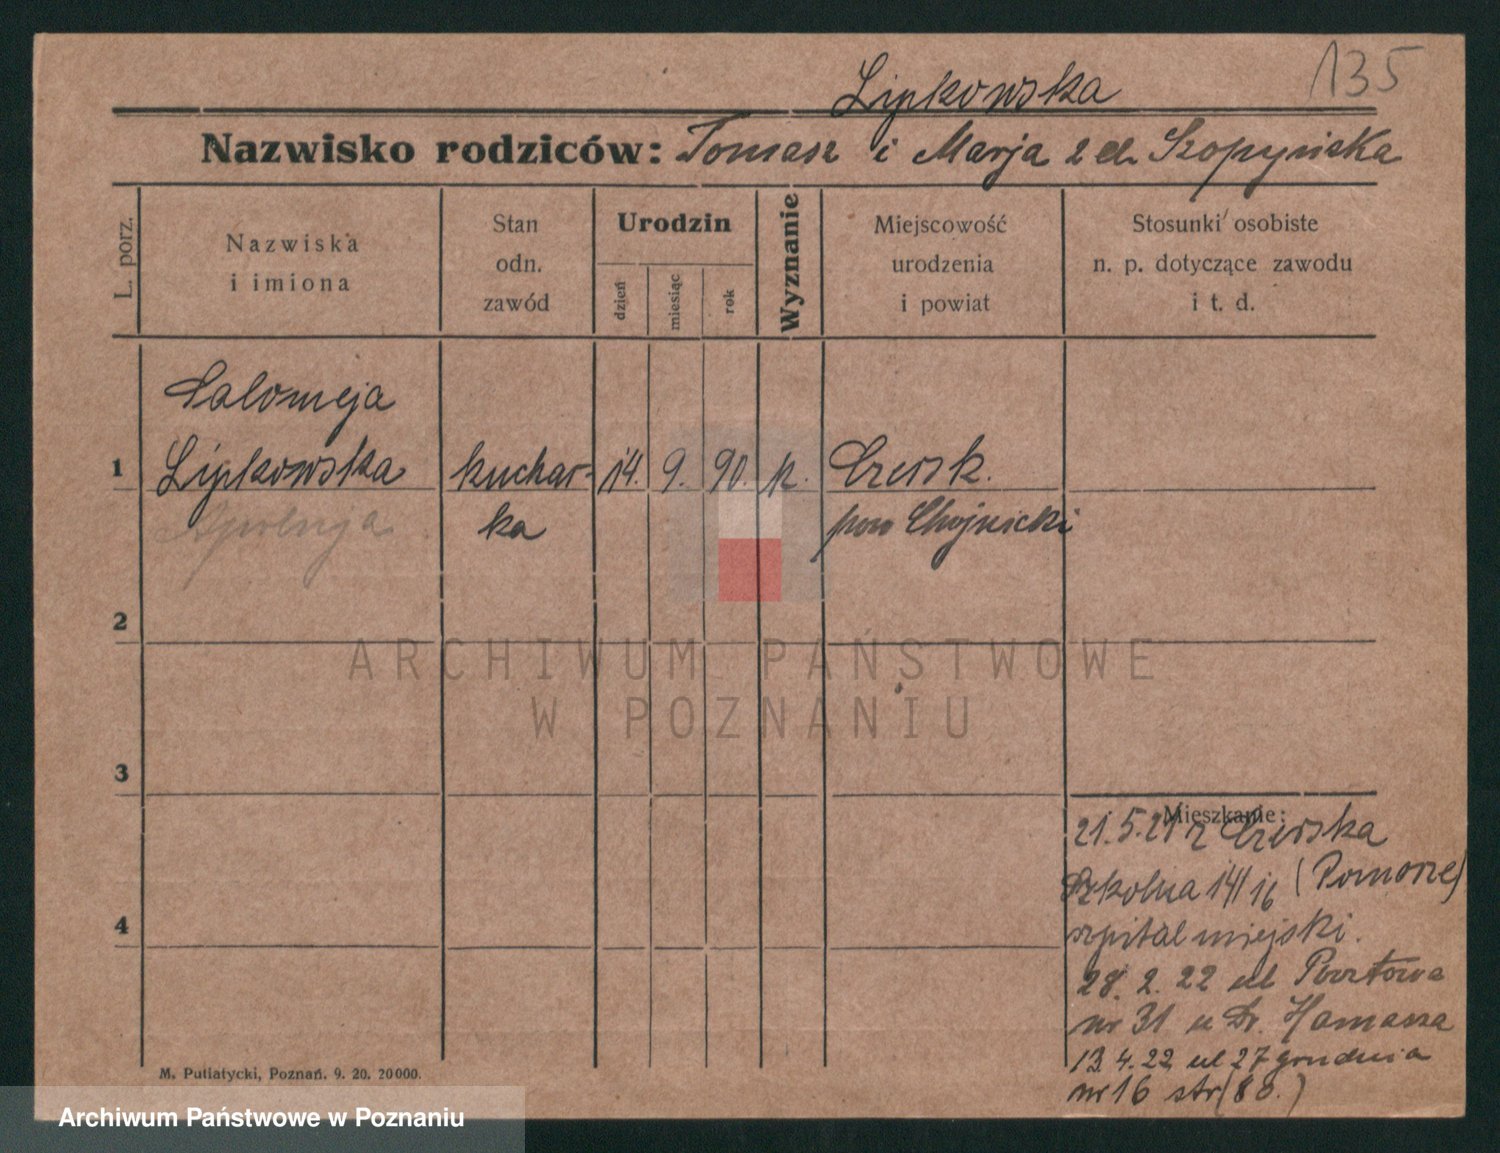 135
Lipkowska
Nazwisko rodziców: Tomasz i Marja z d. Szopyńska
L. porz.
Nazwiska
i imiona
Stan
odn.
zawód
Urodzin
dzień
miesiąc
rok
Wyznanie
Miejscowość
urodzenia
i powiat
Stosunki osobiste
n. p. dotyczące zawodu
i t. d.
Salomeja
1 Lipkowska kuchar- 14. 9. 90. k. Czersk.
ka pow Chojnicki
2
3
4
Mieszkanie:
21.5.21 z Czerska
Szkolna 14/16 (Pomorze)
szpital miejski.
28.2.22 ul Pocztowa
nr 31 u Dr.
13.4.22 ul 27 grudnia
nr 16 str(80.)
M. Putiatycki, Poznań. 9. 20. 20000.
ARCHIWUM PAŃSTWOWE
W POZNANIU
Archiwum Państwowe w Poznaniu